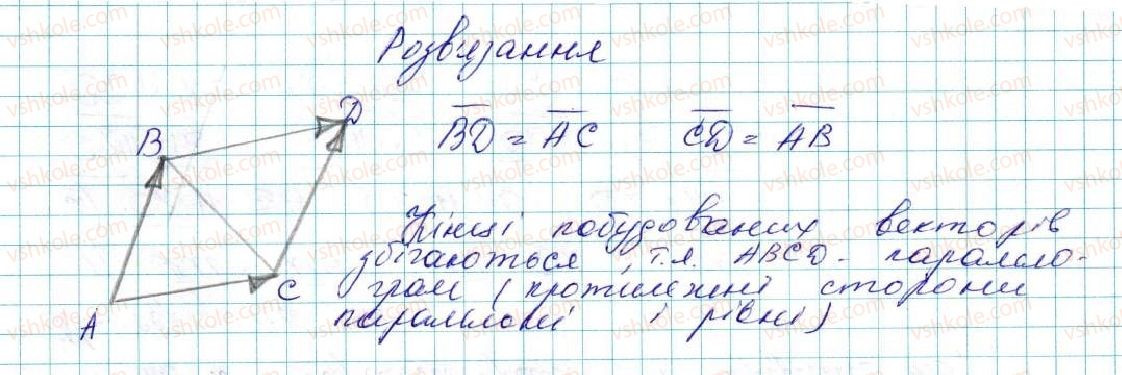 Розв'язання
B D A C
B̅D̅ = A̅C̅ C̅D̅ = A̅B̅
Кінці побудованих векторів
збігаються, т.я. ABCD - паралело-
грам (протилежні сторони
паралельні і рівні)
vshkole.com